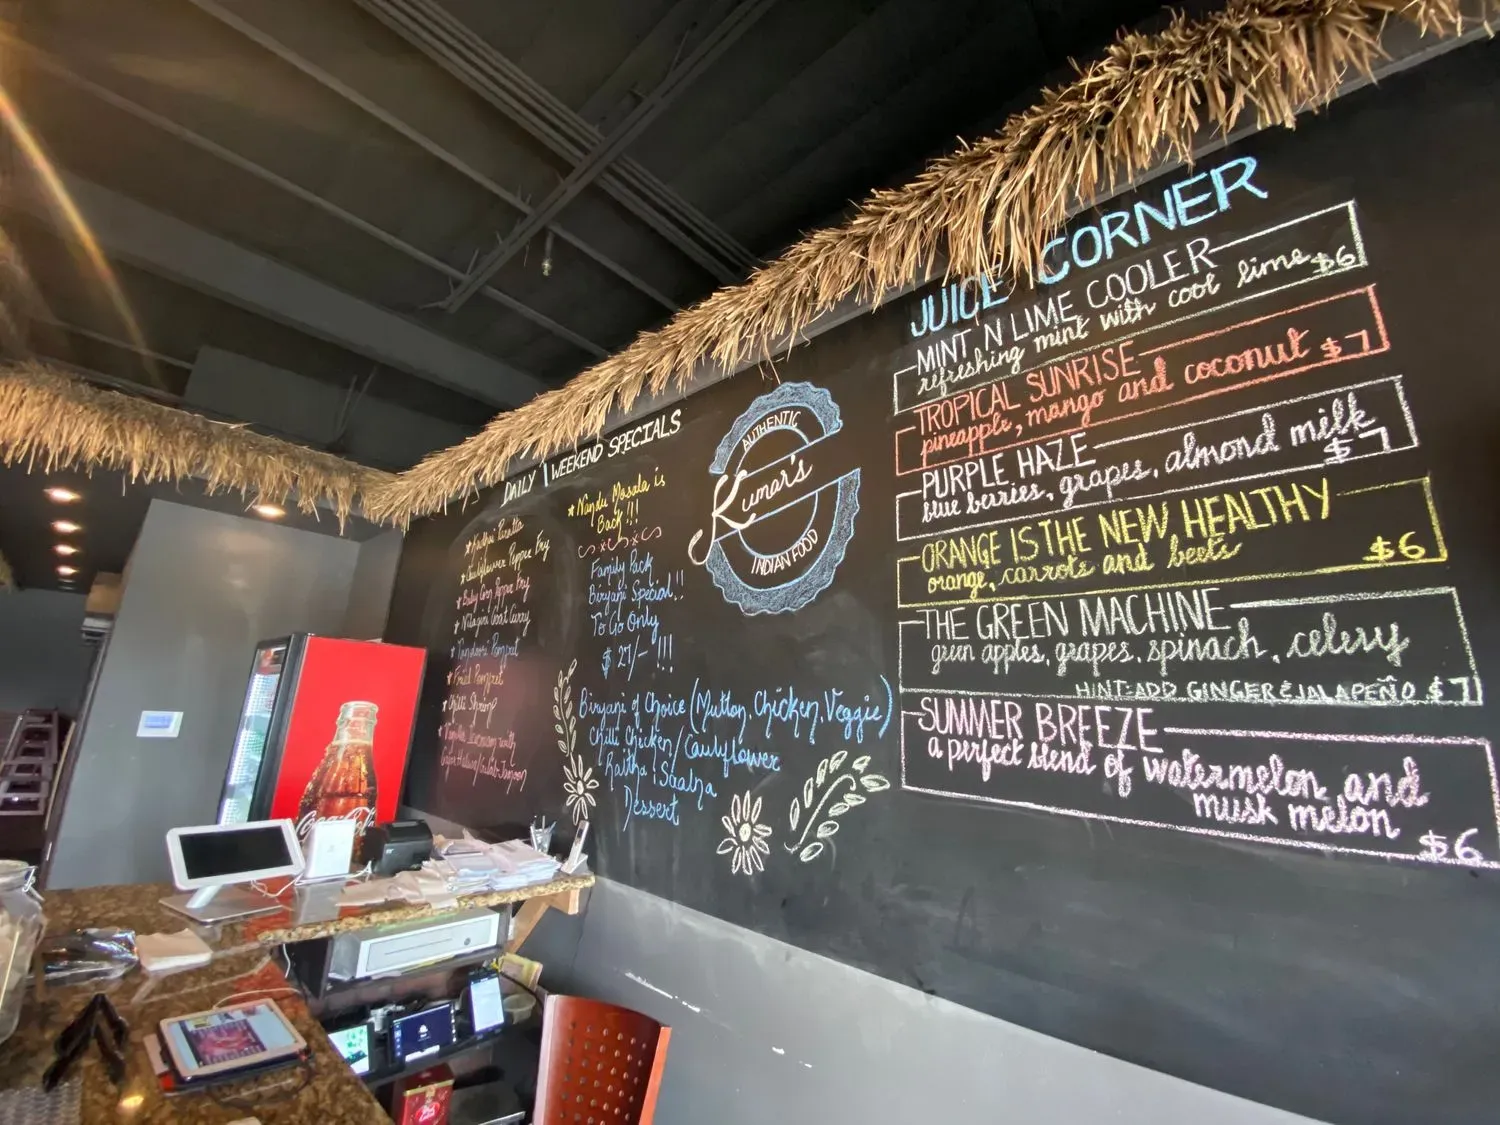 DAILY | WEEKEND SPECIALS
* Kothu Parotta
* Cauliflower Pepper Fry
* Baby Corn Pepper Fry
* Nilagiri Goat Curry
* Tandoori Pomfret
* Fried Pomfret
* Chilli Shrimp
* Vanilla Icecream with
* Nandu Masala is
Back!!!
Family Pack
Biryani Special!!
To Go Only
$ 27/- !!!
Biryani of Choice (Mutton, Chicken, Veggie)
Chilli Chicken/Cauliflower
Raitha, Saalna
Dessert
AUTHENTIC
Kumar's
INDIAN FOOD
JUICE CORNER
MINT 'N LIME COOLER
refreshing mint with cool lime $6
TROPICAL SUNRISE
pineapple, mango and coconut $7
PURPLE HAZE
blue berries, grapes, almond milk
$7
ORANGE IS THE NEW HEALTHY
orange, carrots and beets $6
THE GREEN MACHINE
green apples, grapes, spinach, celery
HINT:ADD GINGER & JALAPEÑO $7
SUMMER BREEZE
a perfect blend of watermelon and
musk melon
$6
Coca-Cola